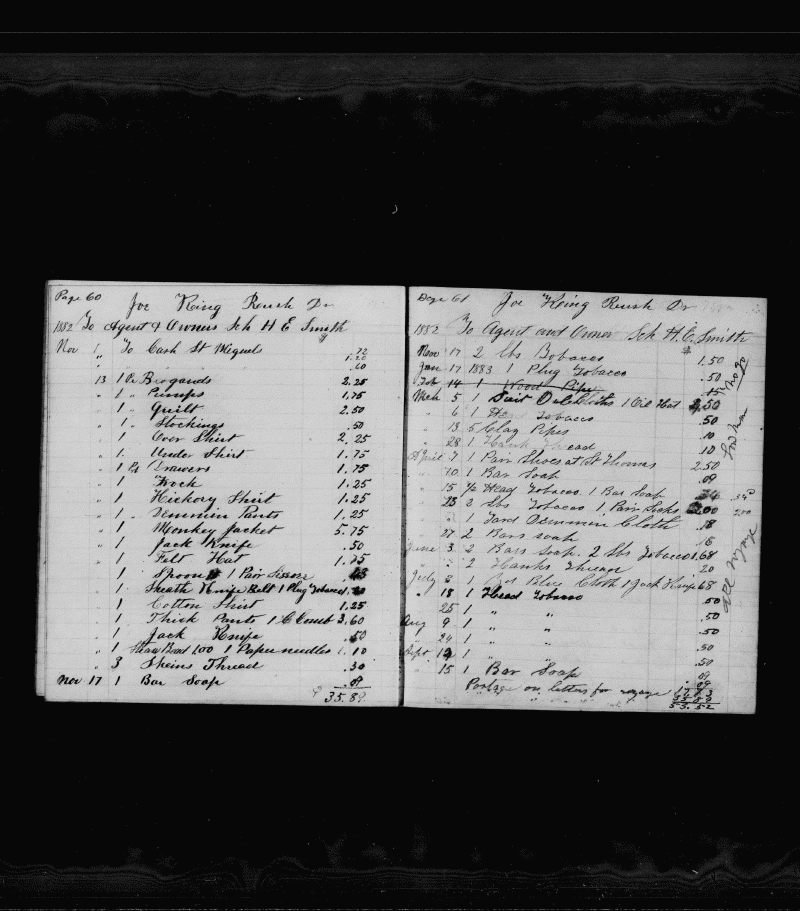 Page 60
Joe King Roush Dr
1882 To Agent & Owners Sch H E Smith
Nov 1 To Cash St Miguels .72
" 1.20
" .60
" 13 1 Pr Brogands 2.25
" 1 " Pumps 1.75
" 1 " Quilt 2.50
" 1 " Stockings .50
" 1 Over Shirt 2.25
" 1 Under Shirt 1.75
" 1 Pr Drawers 1.75
" 1 Frock 1.25
" 1 Hickory Shirt 1.25
" 1 " Demmin Pants 1.25
" 1 Monkey Jacket 5.75
" 1 Jack Knife .50
" 1 Felt Hat 1.75
" 1 Spoon 1 Pair Sissors
" 1 Sheath Knife Belt 1 Plug Tobacco
" 1 Cotton Shirt 1.25
" 1 Thick Pants 1 C Comb 3.60
" 1 Jack Knife .50
" 1 Straw Bed 1.00 1 Paper needles 1.10
" 3 Skeins Thread .30
Nov 17 1 Bar Soap .09
35.89
Page 61
Joe King Roush Dr
1882 To Agent and Owner Sch H. E. Smith
Nov 17 2 lbs Tobacco $ 1.50
Jan 17 1883 1 Plug Tobacco .50
Feb 14 1 Wood Pipe .15
Mch 5 1 Suit Oilcloths 1 Oil Hat 50
" 6 1 Tobacco .50
" 13 5 Clay Pipes .10
" 28 1 Hank Thread .10
April 7 1 Pair Shoes at St Thomas 2.50
" 10 1 Bar Soap .09
" 15 1/2 Head Tobacco 1 Bar Soap 34
" 25 2 lbs Tobacco 1 Pair Socks 2.00 2.00
" " 1 Yard Demmin Cloth .18
" 27 2 Bars soap .18
June 3 2 Bars Soap. 2 lbs Tobacco 1.68
" " 2 Hanks Thread 20
July 3 1 Blue Cloth 1 Jack Knife 68
" 18 1 Head Tobacco .50
" 25 1 " " .50
Aug 9 1 " " .50
" 24 1 " " .50
Sept 12 1 " " .50
" 15 1 Bar Soap .09
Postage on letters for voyage .09
17.63
35.89
53.52